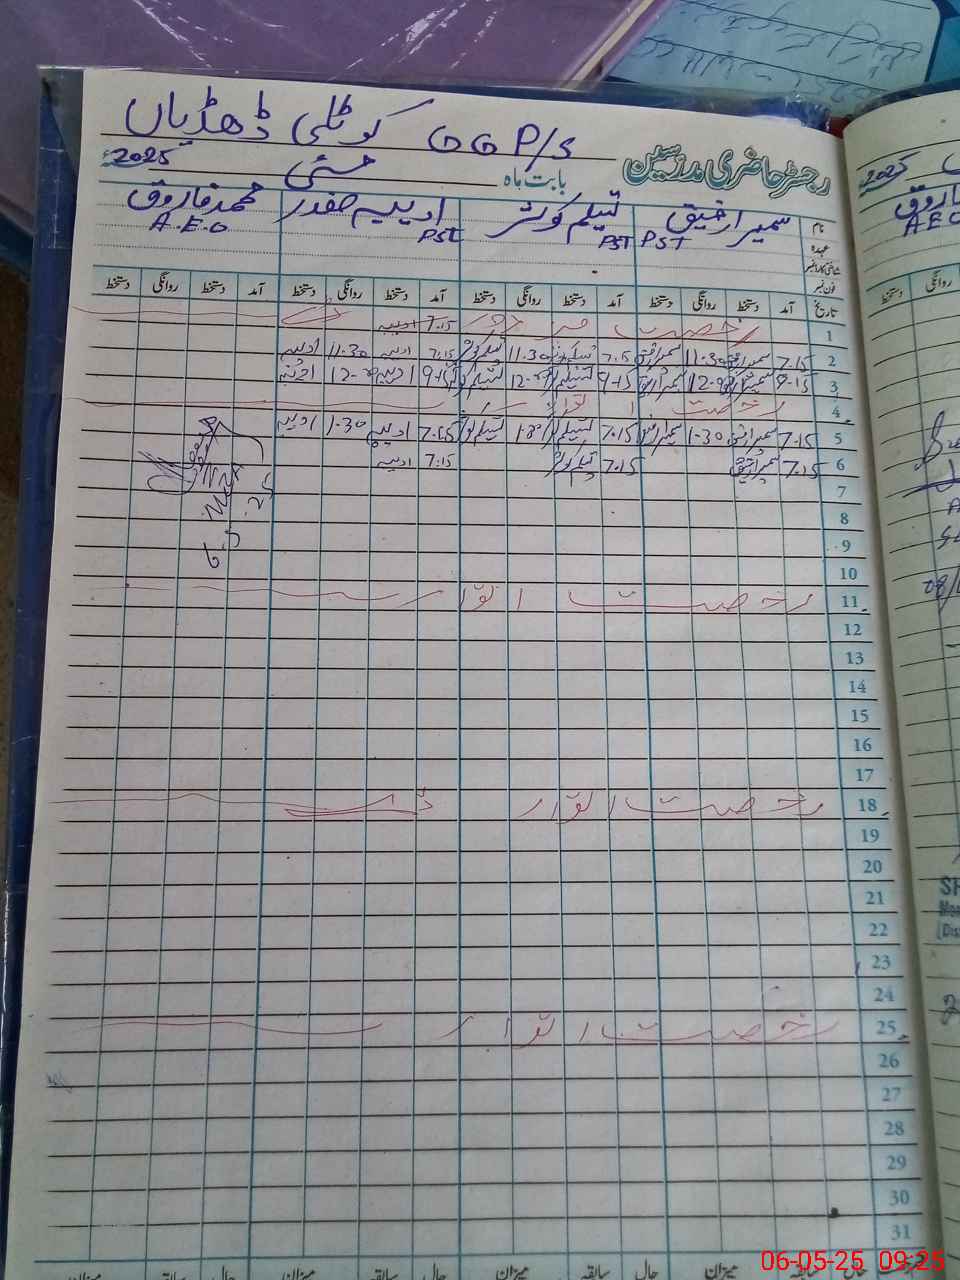 GGP/S کوٹلی ڈھڈیاں
رجسٹر حاضری مدرسین
بابت ماہ مئی 2025ء
نام سمیرا رفیق نیلم کوثر ادیبہ صفدر محمد فاروق
عہدہ PST PST PST A.E.O
شناختی کارڈ نمبر
فون نمبر
تاریخ آمد دستخط روانگی دستخط آمد دستخط روانگی دستخط آمد دستخط روانگی دستخط آمد دستخط روانگی دستخط
1 رخصت مزدور ڈے 7.15 ادیبہ
2 7.15 سمیرا رفیق 11.30 سمیرا رفیق 7.15 نیلم کوثر 11.30 نیلم کوثر 7.15 ادیبہ 11.30 ادیبہ
3 9-15 سمیرا رفیق سمیرا رفیق 9-15 نیلم کوثر نیلم کوثر 9-15 ادیبہ ادیبہ
4 رخصت اتوار
5 7.15 سمیرا رفیق 1-30 سمیرا رفیق 7.15 نیلم کوثر نیلم کوثر 7.15 ادیبہ 1.30 ادیبہ
6 7.15 سمیرا رفیق 7.15 نیلم کوثر 7.15 ادیبہ
7
8
9
10
11 رخصت اتوار
12
13
14
15
16
17
18 رخصت اتوار
19
20
21
22
23
24
25 رخصت اتوار
26
27
28
29
30
31
میزان حال سابقہ میزان حال سابقہ میزان حال سابقہ میزان
2025
فاروق
AEO
06-05-25 09:25